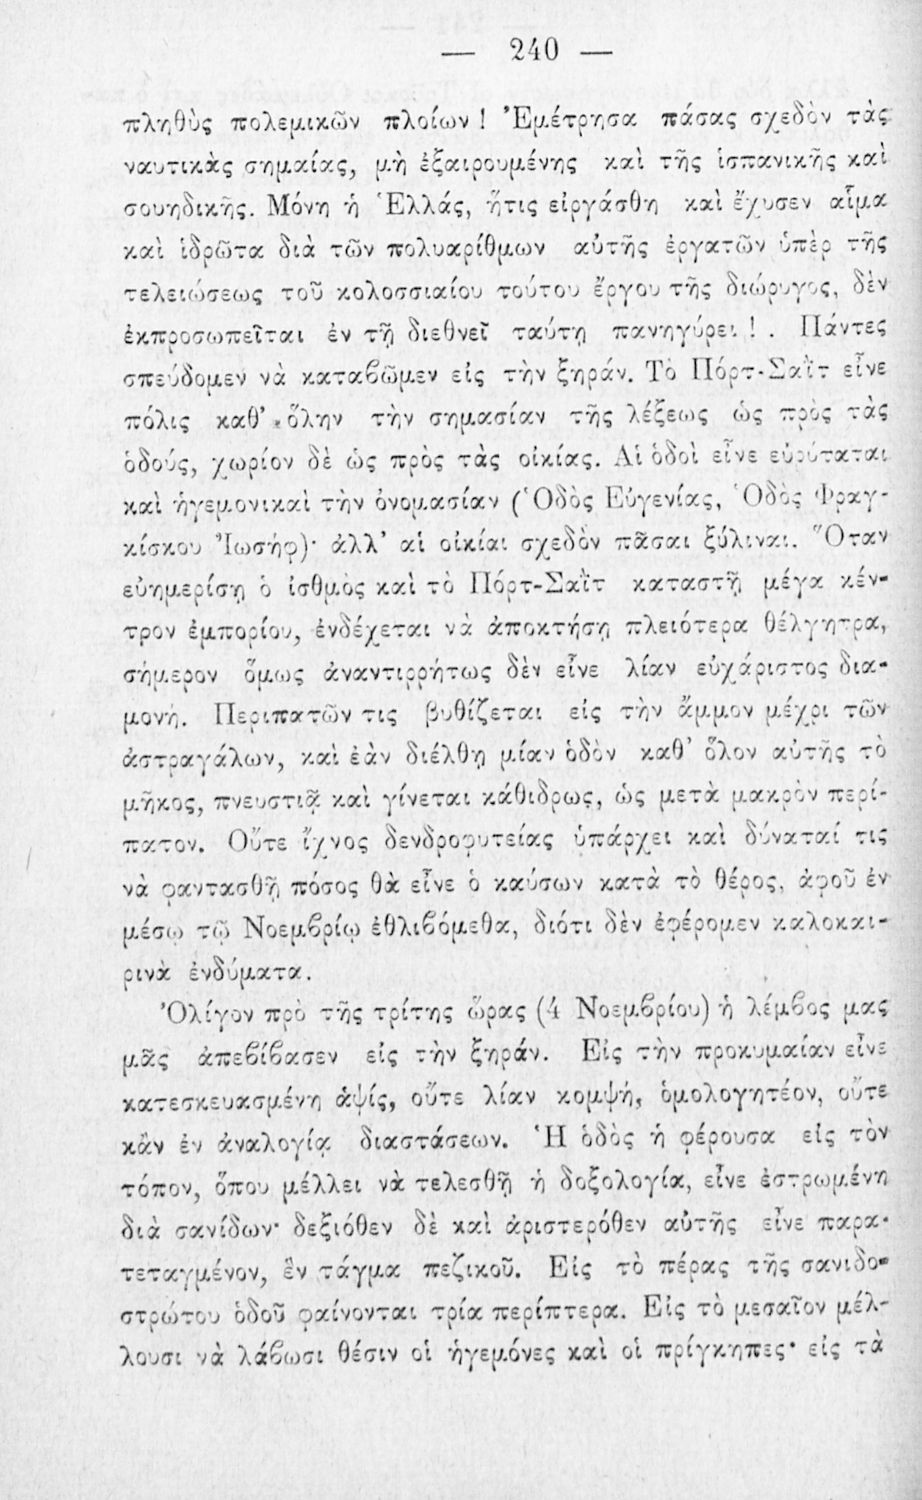 — 240 —
πληθὺς πολεμικῶν πλοίων ! Ἐμέτρησα πάσας σχεδὸν τὰς
ναυτικὰς σημαίας, μὴ ἐξαιρουμένης καὶ τῆς ἱσπανικῆς καὶ
σουηδικῆς. Μόνη ἡ Ἑλλάς, ἥτις εἰργάσθη καὶ ἔχυσεν αἷμα
καὶ ἱδρῶτα διὰ τῶν πολυαρίθμων αὐτῆς ἐργατῶν ὑπὲρ τῆς
τελειώσεως τοῦ κολοσσιαίου τούτου ἔργου τῆς διώρυγος, δὲν
ἐκπροσωπεῖται ἐν τῇ διεθνεῖ ταύτῃ πανηγύρει ! . Πάντες
σπεύδομεν νὰ καταβῶμεν εἰς τὴν ξηράν. Τὸ Πόρτ-Σαῒτ εἶνε
πόλις καθ’ ὅλην τὴν σημασίαν τῆς λέξεως ὡς πρὸς τὰς
ὁδούς, χωρίον δὲ ὡς πρὸς τὰς οἰκίας. Αἱ ὁδοὶ εἶνε εὐρύταται
καὶ ἡγεμονικαὶ τὴν ὀνομασίαν (Ὁδὸς Εὐγενίας, Ὁδὸς Φραγ-
κίσκου Ἰωσήφ)· ἀλλ’ αἱ οἰκίαι σχεδὸν πᾶσαι ξύλιναι. Ὅταν
εὐημερίσῃ ὁ ἰσθμὸς καὶ τὸ Πόρτ-Σαῒτ καταστῇ μέγα κέν-
τρον ἐμπορίου, ἐνδέχεται νὰ ἀποκτήσῃ πλειότερα θέλγητρα,
σήμερον ὅμως ἀναντιρρήτως δὲν εἶνε λίαν εὐχάριστος δια-
μονή. Περιπατῶν τις βυθίζεται εἰς τὴν ἄμμον μέχρι τῶν
ἀστραγάλων, καὶ ἐὰν διέλθῃ μίαν ὁδὸν καθ’ ὅλον αὐτῆς τὸ
μῆκος, πνευστιᾷ καὶ γίνεται κάθιδρως, ὡς μετὰ μακρὸν περί-
πατον. Οὔτε ἴχνος δενδροφυτείας ὑπάρχει καὶ δύναταί τις
νὰ φαντασθῇ πόσος θὰ εἶνε ὁ καύσων κατὰ τὸ θέρος, ἀφοῦ ἐν
μέσῳ τῷ Νοεμβρίῳ ἐθλιβόμεθα, διότι δὲν ἐφέρομεν καλοκαι-
ρινὰ ἐνδύματα.
Ὀλίγον πρὸ τῆς τρίτης ὥρας (4 Νοεμβρίου) ἡ λέμβος μας
μᾶς ἀπεβίβασεν εἰς τὴν ξηράν. Εἰς τὴν προκυμαίαν εἶνε
κατεσκευασμένη ἁψίς, οὔτε λίαν κομψή, ὁμολογητέον, οὔτε
κἂν ἐν ἀναλογίᾳ διαστάσεων. Ἡ ὁδὸς ἡ φέρουσα εἰς τὸν
τόπον, ὅπου μέλλει νὰ τελεσθῇ ἡ δοξολογία, εἶνε ἐστρωμένη
διὰ σανίδων· δεξιόθεν δὲ καὶ ἀριστερόθεν αὐτῆς εἶνε παρα-
τεταγμένον, ἓν τάγμα πεζικοῦ. Εἰς τὸ πέρας τῆς σανιδο-
στρώτου ὁδοῦ φαίνονται τρία περίπτερα. Εἰς τὸ μεσαῖον μέλ-
λουσι νὰ λάβωσι θέσιν οἱ ἡγεμόνες καὶ οἱ πρίγκηπες· εἰς τὰ